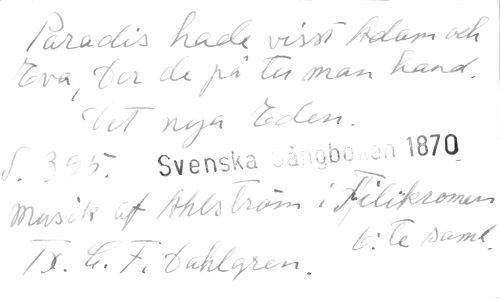 Paradis hade visst Adam och
Eva, Der de på tu man hand.
Det nya Eden.
S. 395. Svenska Sångboken 1870
Musik af Ahlström i Filikromen
6:te saml.
Tx. C. F. Dahlgren.